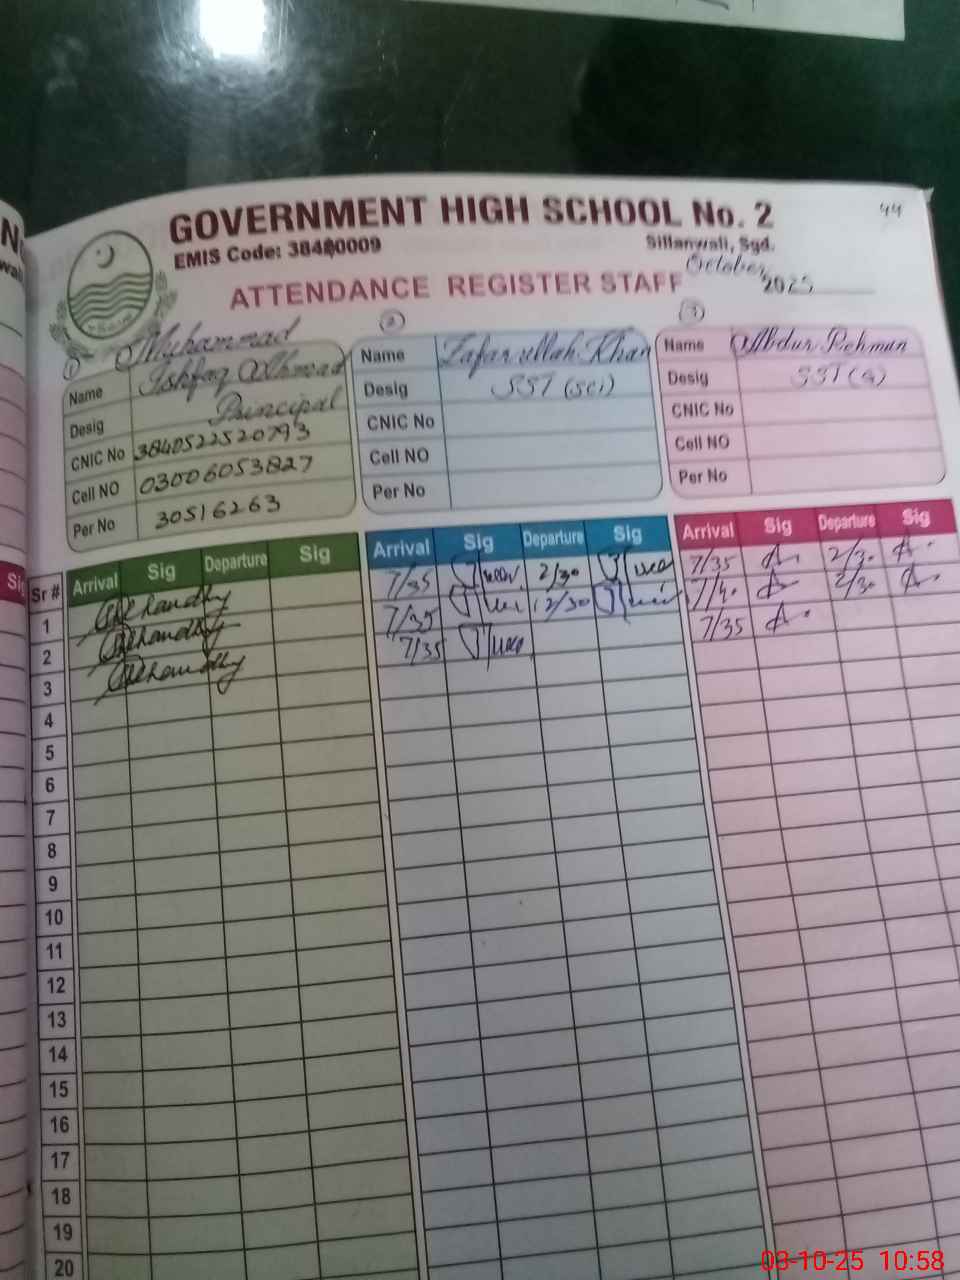 44
GOVERNMENT HIGH SCHOOL No. 2
EMIS Code: 38480009
Sillanwali, Sgd.
ATTENDANCE REGISTER STAFF
October 2025
1
Name Muhammad Ishfaq Ahmad
Desig Principal
CNIC No 3840522520793
Cell NO 03006053827
Per No 30516263
2
Name Zafar ullah Khan
Desig SST (sci)
CNIC No
Cell NO
Per No
3
Name Abdur Rehman
Desig
CNIC No
Cell NO
Per No
Sr # Arrival Sig Departure Sig Arrival Sig Departure Sig Arrival Sig Departure Sig
1 7/35 2/30 7/35 2/30
2 7/35 12/30 7/40 2/30
3 7/35 7/35
4
5
6
7
8
9
10
11
12
13
14
15
16
17
18
19
20
03-10-25 10:58